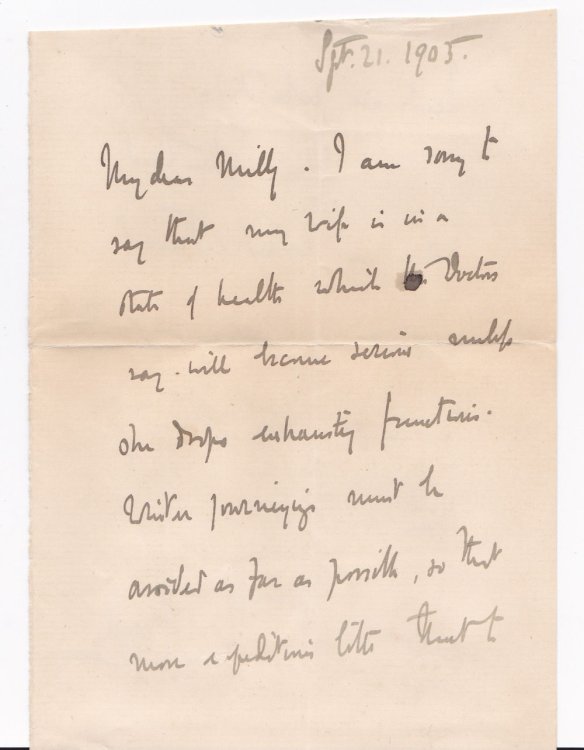 Spt. 21. 1905.
My dear Milly. I am sorry to
say that my wife is in a
state of health which the Doctors
say will become serious unless
she drops exhausting functions.
Winter journeyings must be
avoided as far as possible, so that
more expeditions like that to